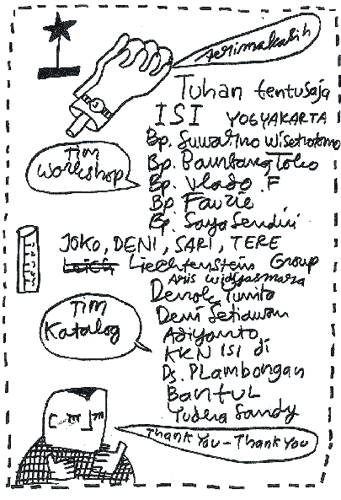 Terimakasih
Tuhan tentusaja
ISI YOGYAKARTA
Tim
workshop
Bp. Suwarno Wisetrotomo
Bp. Bambang Toko
Bp. Vlado .F
Bp. Fauzie
Bp. Saya Sendiri
JOKO, DENI, SARI, TERE
Liechtenstein Group
Anis
Tim
Katalog
Deni Setiawan
Adiyanto
KKN ISI di
Ds. PLambongan
BantuL
Yudha Sandy
Thank You - Thank You